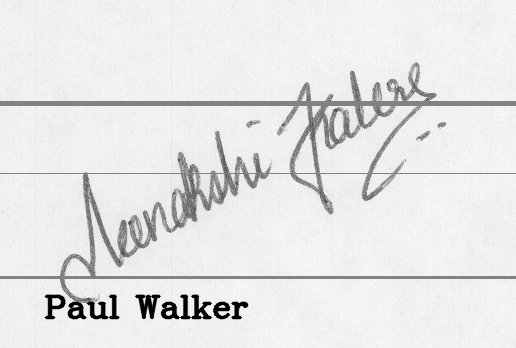 Meenakshi Jhalera
Paul Walker